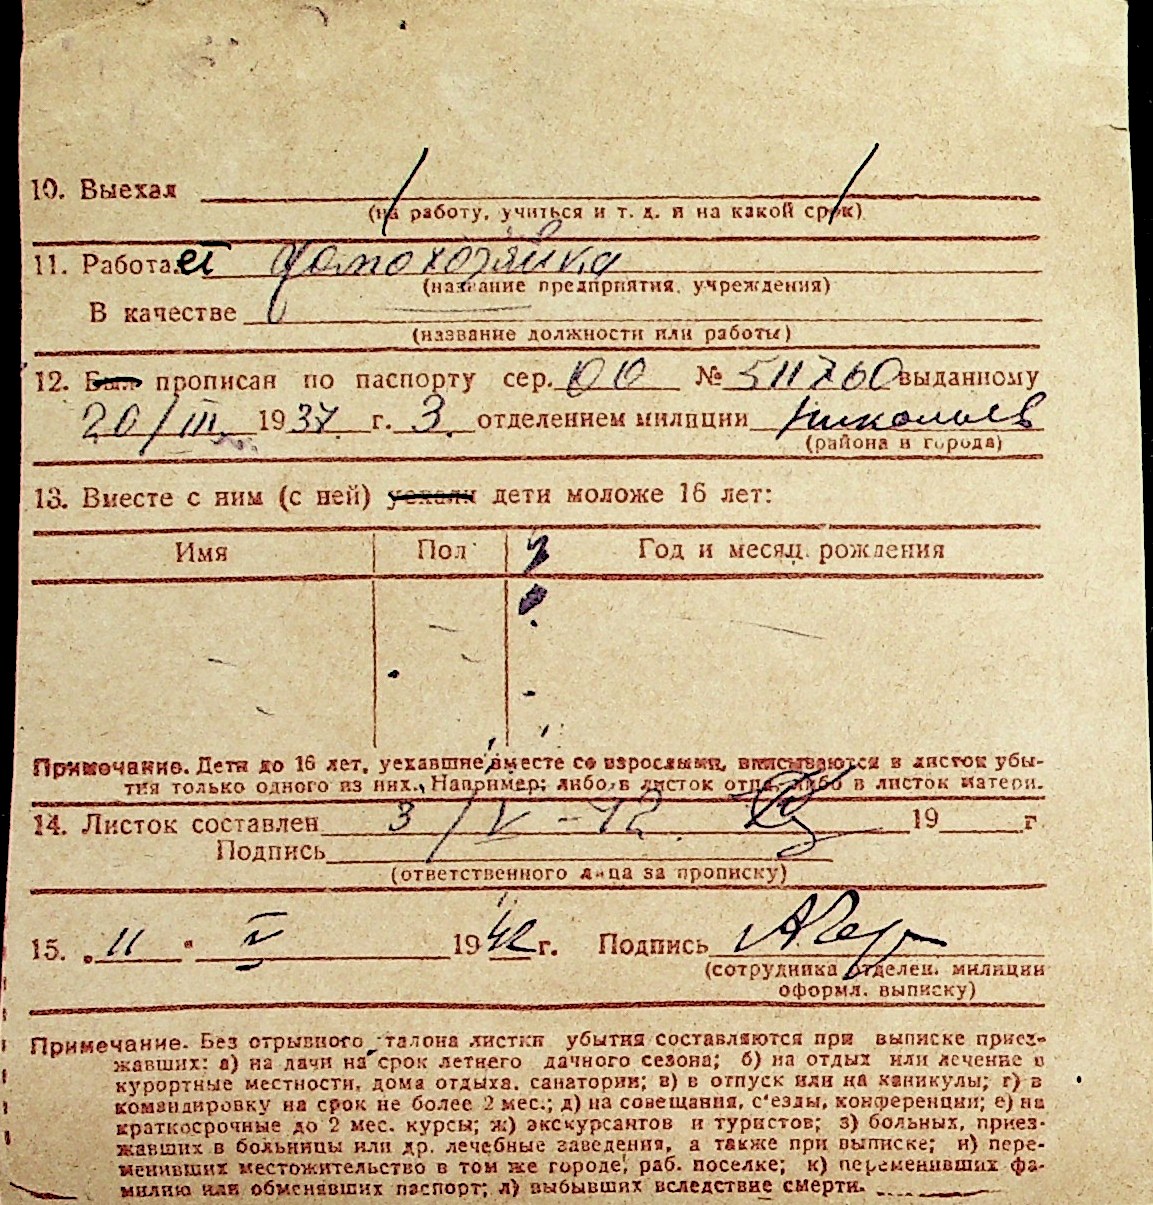 10. Выехал
(на работу, учиться и т. д. и на какой срок)
11. Работает домохозяйка
(название предприятия, учреждения)
В качестве
(название должности или работы)
12. Был прописан по паспорту сер. ОО № 511760 выданному
20/III 1937 г. 3. отделением милиции Николаев
(района и города)
13. Вместе с ним (с ней) уехали дети моложе 16 лет:
Имя Пол Год и месяц рождения
Примечание. Дети до 16 лет, уехавшие вместе со взрослыми, вписываются в листок убы-
тия только одного из них. Например: либо в листок отца, либо в листок матери.
14. Листок составлен 3/V-42 19 г
Подпись
(ответственного лица за прописку)
15. „11" V 1942 г. Подпись
(сотрудника отделен. милиции
оформл. выписку)
Примечание. Без отрывного талона листки убытия составляются при выписке приез-
жавших: а) на дачи на срок летнего дачного сезона; б) на отдых или лечение в
курортные местности, дома отдыха, санатории; в) в отпуск или на каникулы; г) в
командировку на срок не более 2 мес.; д) на совещания, с'езды, конференции; е) на
краткосрочные до 2 мес. курсы; ж) экскурсантов и туристов; з) больных, приез-
жавших в больницы или др. лечебные заведения, а также при выписке; и) пере-
менивших местожительство в том же городе, раб. поселке; к) переменивших фа-
милию или обменявших паспорт; л) выбывших вследствие смерти.